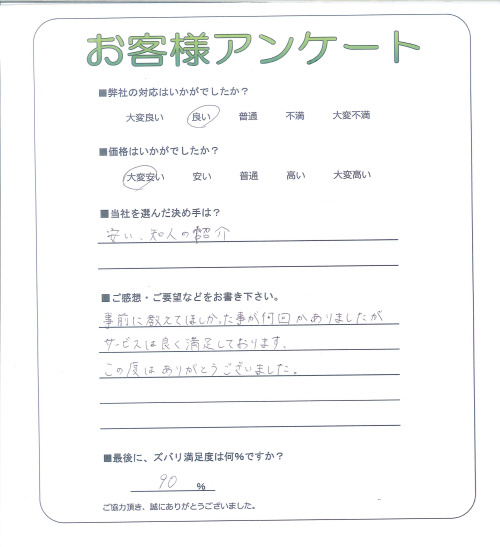 お客様アンケート
■弊社の対応はいかがでしたか？
大変良い 良い 普通 不満 大変不満
■価格はいかがでしたか？
大変安い 安い 普通 高い 大変高い
■当社を選んだ決め手は？
安い、知人の紹介
■ご感想・ご要望などをお書き下さい。
事前に教えてほしかった事が何回かありましたが
サービスは良く満足しております。
この度はありがとうございました。
■最後に、ズバリ満足度は何％ですか？
90 ％
ご協力頂き、誠にありがとうございました。